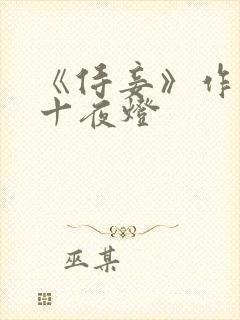 《侍妾》作
十夜燈
巫某